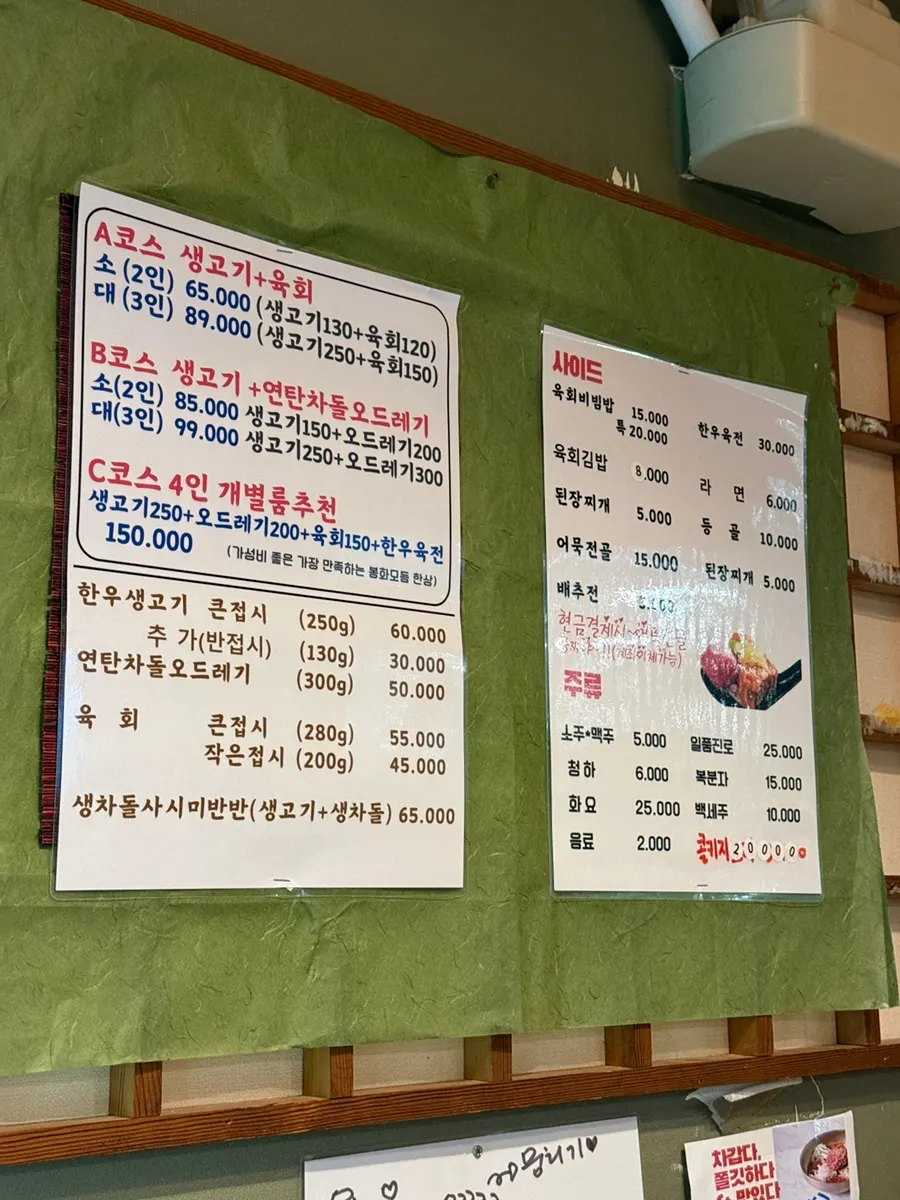 A코스 생고기+육회
소 (2인) 65.000 (생고기130+육회120)
대 (3인) 89.000 (생고기250+육회150)
B코스 생고기 +연탄차돌오드레기
소(2인) 85.000 생고기150+오드레기200
대(3인) 99.000 생고기250+오드레기300
C코스 4인 개별룸추천
생고기250+오드레기200+육회150+한우육전
150.000 (가성비 좋은 가장 만족하는 봉화모듬 한상)
한우생고기 큰접시 (250g) 60.000
추 가(반접시) (130g) 30.000
연탄차돌오드레기 (300g) 50.000
육 회 큰접시 (280g) 55.000
작은접시 (200g) 45.000
생차돌사시미반반(생고기+생차돌) 65.000
사이드
육회비빔밥 15.000
특 20.000
한우육전 30.000
육회김밥 8.000
라 면 6.000
된장찌개 5.000
등 골 10.000
어묵전골 15.000
된장찌개 5.000
배추전
현금결제시~
(계좌이체가능)
주류
소주•맥주 5.000 일품진로 25.000
청하 6.000 복분자 15.000
화요 25.000 백세주 10.000
음료 2.000 콜키지 20000
차갑다,
쫄깃하다
맛있다